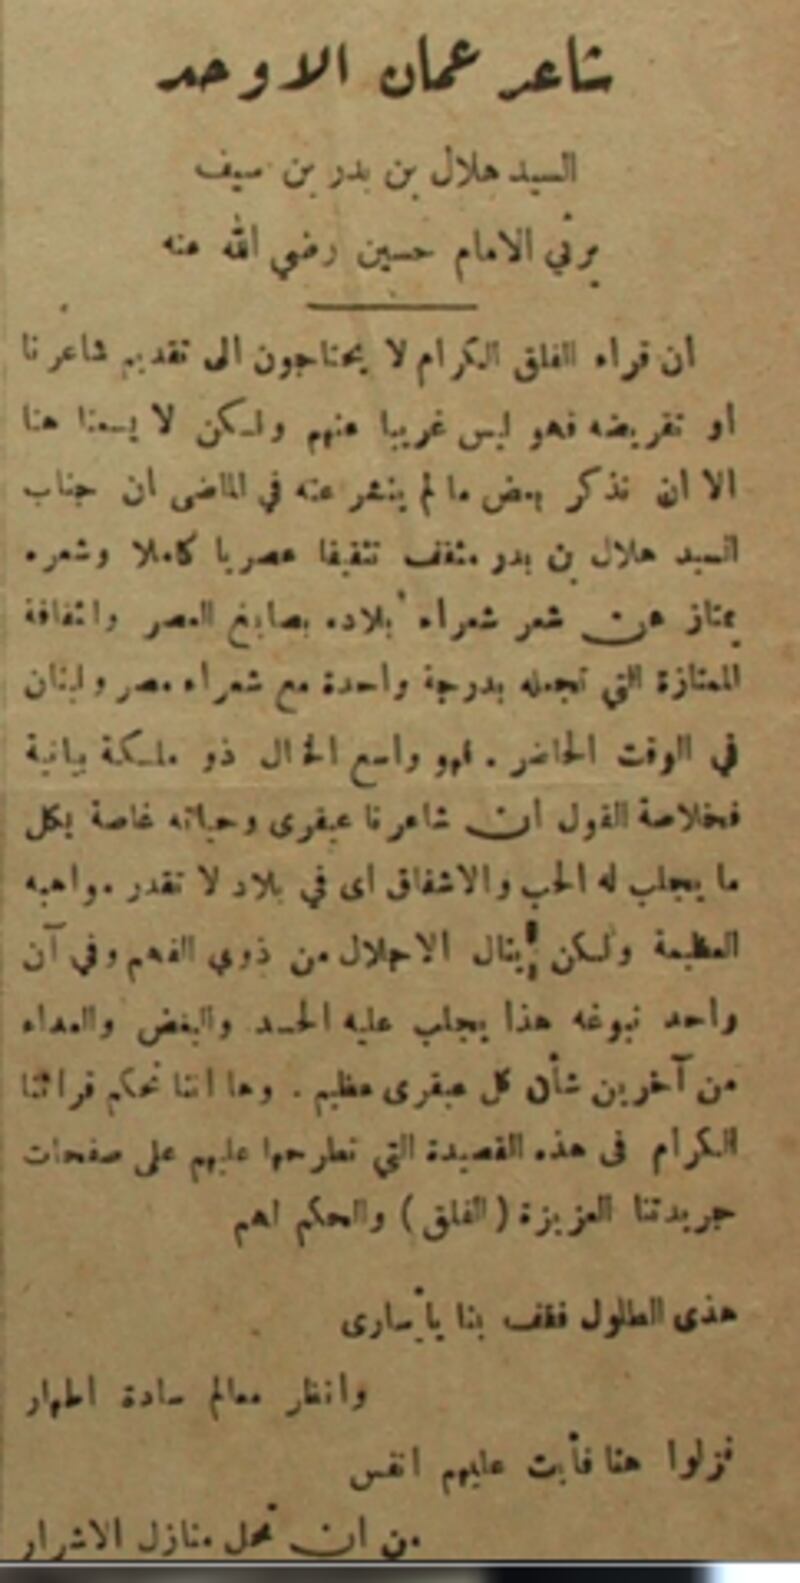 شاعر عمان الاوحد
السيد هلال بن بدر بن سيف
يرثي الامام حسين رضي الله عنه
ان قراء الفلق الكرام لا يحتاجون الى تقديم شاعرنا
او تقريضه فهو ليس غريبا عنهم ولكن لا يسعنا هنا
الا ان نذكر بعض ما لم ينشر عنه في الماضى ان جناب
السيد هلال بن بدر مثقف تثقيفا عصريا كاملا وشعره
يمتاز عن شعر شعراء بلاده بصابغ العصر واثقافة
الممتازة التي تجعله بدرجة واحدة مع شعراء مصر ولبنان
في الوقت الحاضر . فهو واسع الخال ذو ملكة بيانية
فخلاصة القول ان شاعرنا عبقرى وحياته غاصة بكل
ما يجلب له الحب والاشفاق اى في بلاد لا تقدر مواهبه
العظيمة ولكن ينال الاجلال من ذوي الفهم وفي آن
واحد نبوغه هذا يجلب عليه الحسد والبغض والعداء
من آخرين شأن كل عبقرى عظيم . وها اننا نحكم قرائنا
الكرام فى هذه القصيدة التي نطرحها عليهم على صفحات
جريدتنا العزيزة (الفلق) والحكم لهم
هذى الطلول فقف بنا يا سارى
وانظر معالم سادة اطهار
نزلوا هنا فأبت عليهم انفس
من ان تحل منازل الاشرار